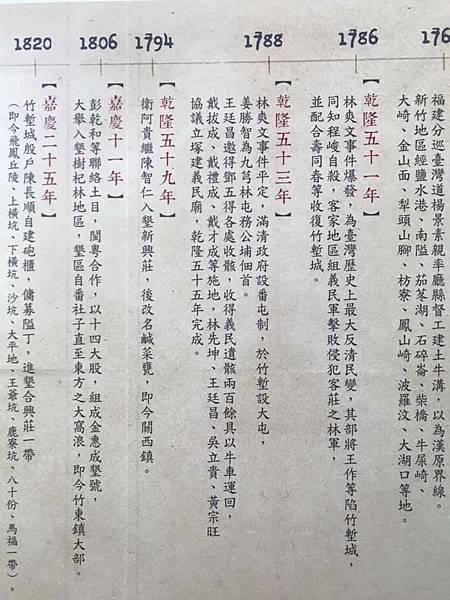 1820
1806
1794
1788
1786
176
福建分巡臺灣道楊景素親率廳縣督工建土牛溝，以為漢原界線。
新竹地區經鹽水港、南隘、茄苳湖、石碎崙、柴橋、牛屎崎、
大崎、金山面、犁頭山腳、枋寮、鳳山崎、波羅汶、大湖口等地。
【乾隆五十一年】
林爽文事件爆發，為臺灣歷史上最大反清民變，其部將王作等陷竹塹城，
同知程峻自殺，客家地區組義民軍擊敗侵犯客莊之林軍，
並配合壽同春等收復竹塹城。
【乾隆五十三年】
林爽文事件平定，滿清政府設番屯制，於竹塹設大屯，
姜勝智為九芎林屯務公埔佃首。
王廷昌邀得鄧五得各處收骸，收得義民遺骸兩百餘具以牛車運回，
戴拔成、戴禮成、戴才成等施地，林先坤、王廷昌、吳立貴、黃宗旺
協議立塚建義民廟，乾隆五十五年完成。
【乾隆五十九年】
衛阿貴繼陳智仁入墾新興莊，後改名鹹菜甕，即今關西鎮。
【嘉慶十一年】
彭乾和等聯絡土目，閩粵合作，以十四大股，組成金惠成墾號，
大舉入墾樹杞林地區，墾區自番社子直至東方之大窩浪，即今竹東鎮大部。
【嘉慶二十五年】
竹塹城殷戶陳長順自建砲櫃，傭募隘丁，進墾合興莊一帶
（即今飛鳳丘陵、上橫坑、下橫坑、沙坑、大平地、王爺坑、鹿寮坑、八十份、馬福一帶）。